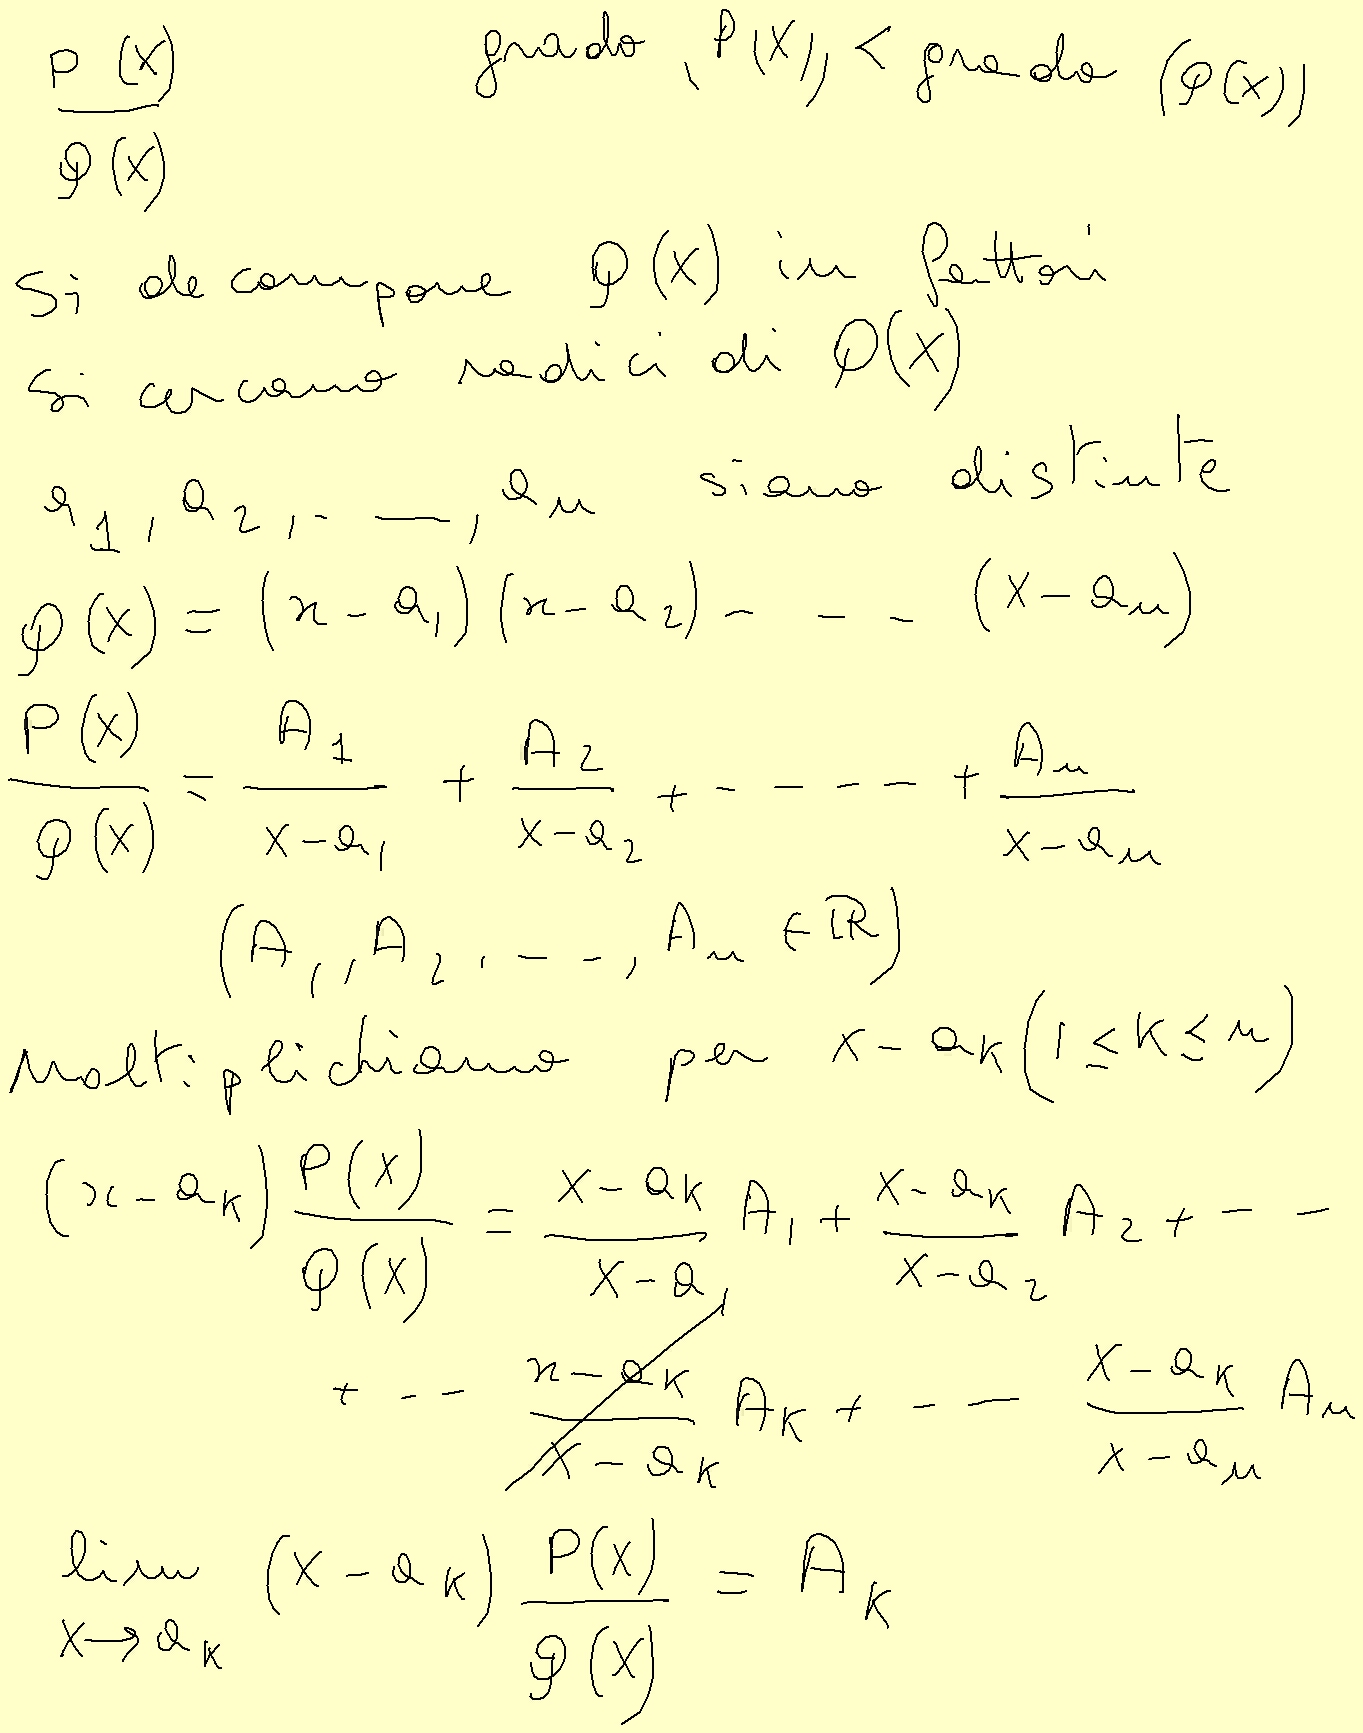 P(x)/Q(x) grado (P(x)) < grado (Q(x))
Si decompone Q(x) in fattori
Si cercano radici di Q(x)
a₁, a₂, . —, aₙ siano distinte
Q(x) = (x - a₁)(x - a₂) - - - (x - aₙ)
P(x)/Q(x) = A₁/(x - a₁) + A₂/(x - a₂) + - - - - + Aₙ/(x - aₙ)
(A₁, A₂, - - -, Aₙ ∈ ℝ)
Moltiplichiamo per x - aₖ (1 ≤ k ≤ n)
(x - aₖ) P(x)/Q(x) = (x - aₖ)/(x - a₁) A₁ + (x - aₖ)/(x - a₂) A₂ + - -
+ - - (x - aₖ)/(x - aₖ) Aₖ + - — (x - aₖ)/(x - aₙ) Aₙ
lim x→aₖ (x - aₖ) P(x)/Q(x) = Aₖ